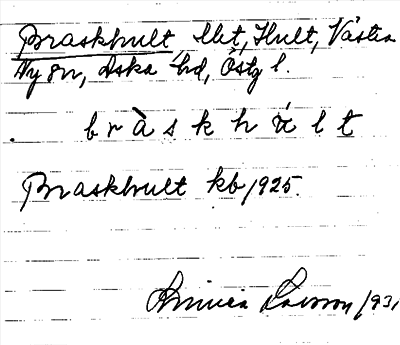 Braskhult lht, Hult, Västra
Ny sn, Aska hd, Östg l.
b r à s k h ú l t
Braskhult kb 1925.
Larsson 1931